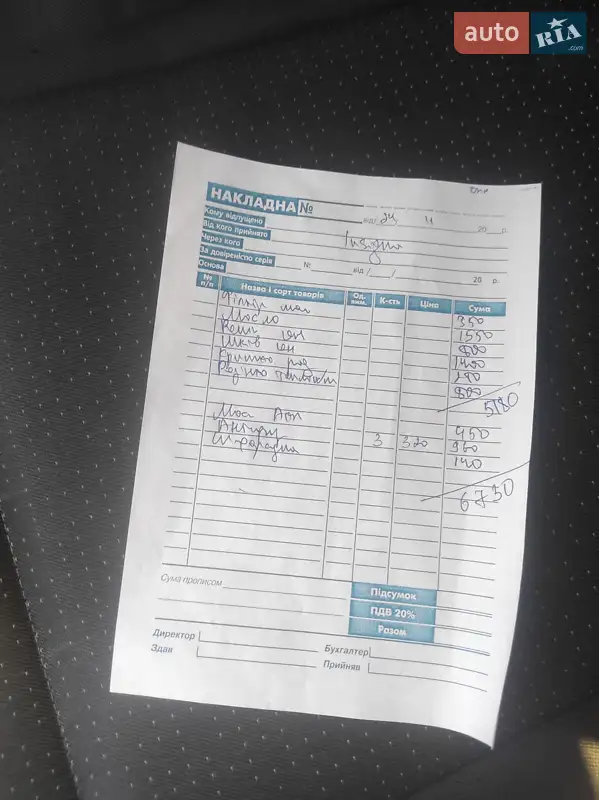 auto RIA.com
НАКЛАДНА №
від 24 11 20 р.
Кому відпущено
Insignia
Від кого прийнято
Через кого
За довіреністю серія № від / / 20 р.
Основа
№ п/п Назва і сорт товарів Од. вим. К-сть Ціна Сума
Фільтр мас 350
Масло 1550
Рем ген
Шків ген 1400
Кришка роз
Рідина 800
5180
Мас 450
Антифр 3 320 960
140
6730
Сума прописом
Підсумок
ПДВ 20%
Разом
Директор Бухгалтер
Здав Прийняв